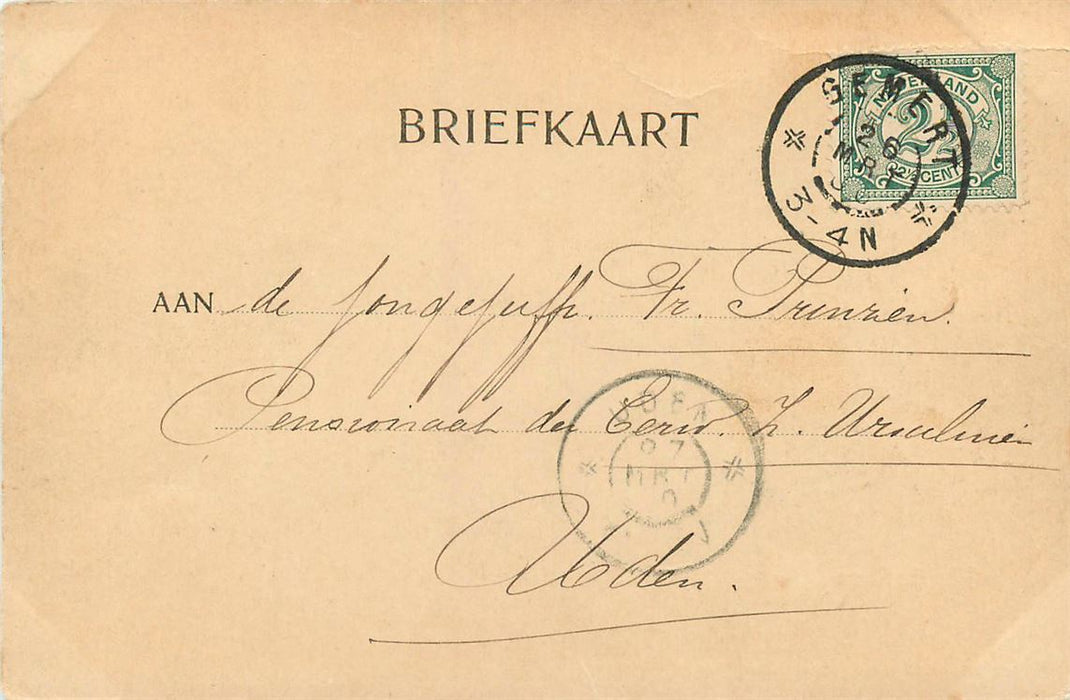 BRIEFKAART
NEDERLAND
2½
2½ CENT
GEMERT
26
MRT
3-4N
AAN de Jongejuffr. Fr. Prinzen.
Pensionaat der Eerw. Z. Ursulinen
UDEN
27
MRT
Uden.